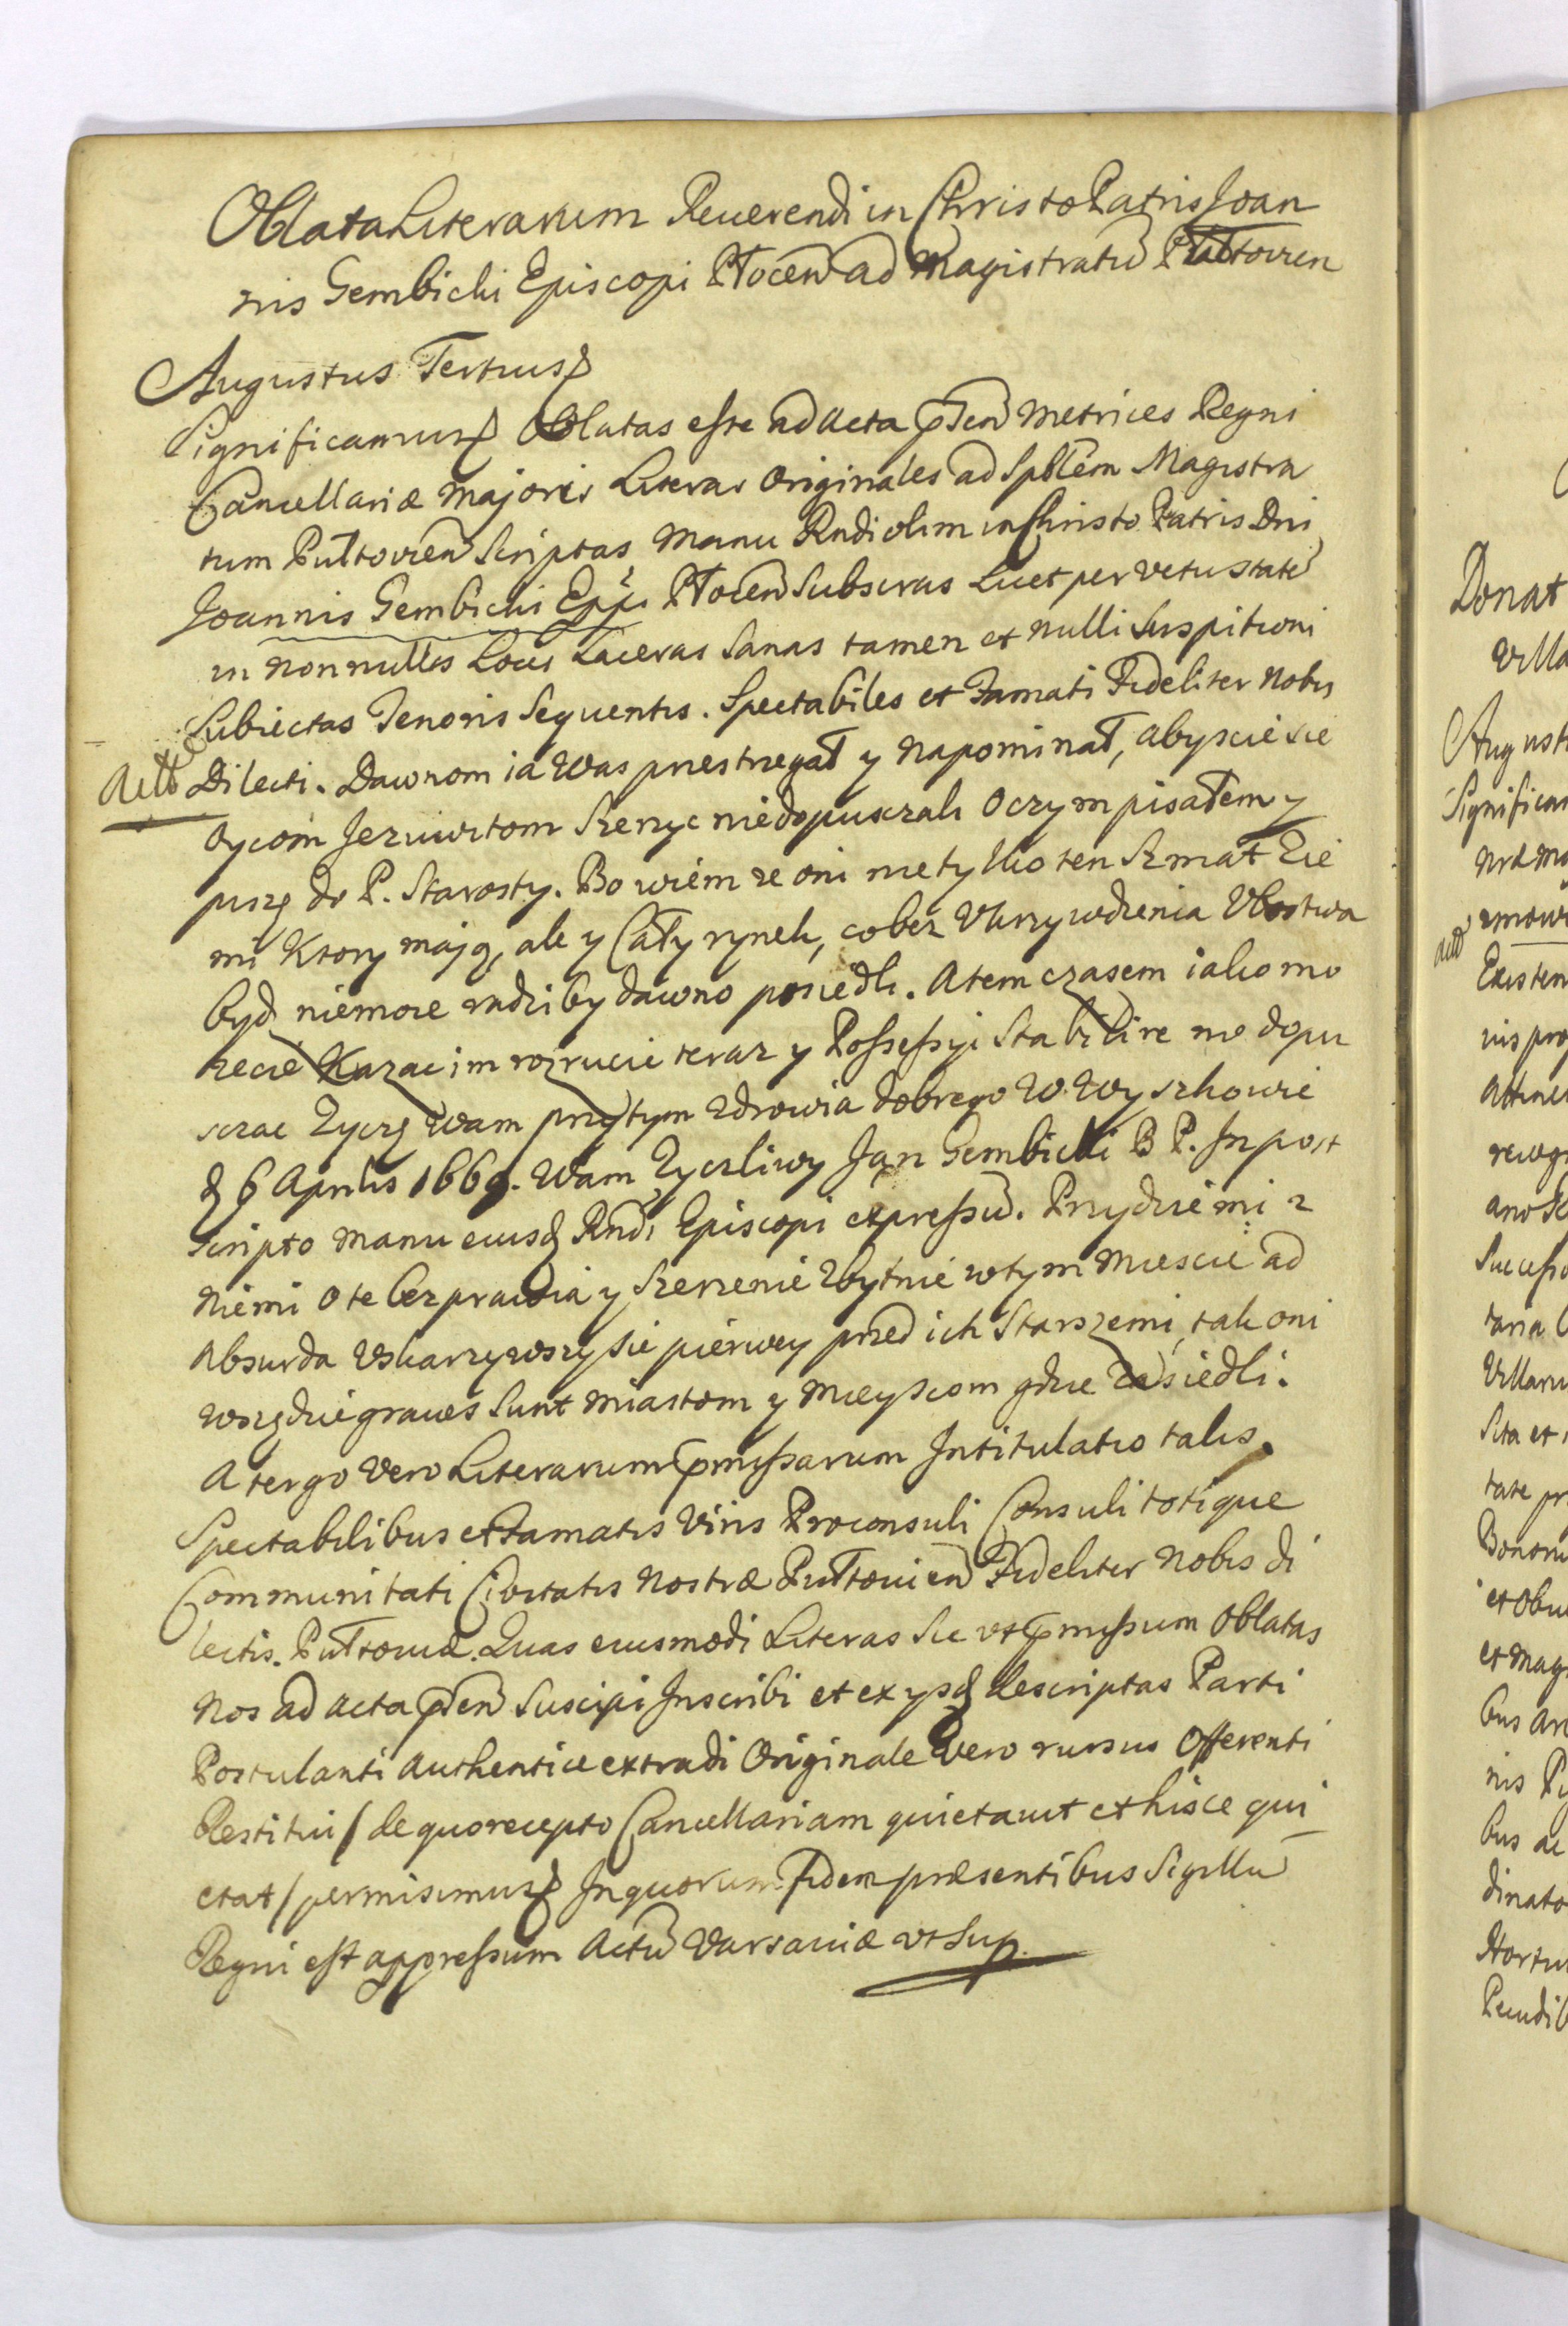 Oblata Literarum Reuerendi in Christo Patris Joan
nis Gembicki Episcopi Płocen ad Magistratū Pułtovien
Augustus Tertius
Significamus Oblatas esse ad acta pñten Metrices Regni
Cancellariæ Majoris Literas Originales ad Spblem Magistra
tum Pułtovien Scriptas, Manu Rndi olim in Christo Patris Dni
Joannis Gembicki Eppi Płocen Subscras Licet per vetustatē
in nonnullis Locis Laceras Sanas tamen et nulli Suspitioni
Subiectas Tenoris Sequentis. Spectabiles et Famati Fideliter Nobis
Dilecti. Dawnom ia Was przestrzegał y napominał, abyscie sie
Oycom Jezuwitom Szerzyc niedopuszczali Oczym pisałem y
piszę do P. Starosty. Bo wiem ze oni nietylko ten Szmat Zie
mi Ktory mają, ale y Cały rynek, cobez Ukrzywdzenia Ubostwa
bydź niemoze radziby dawno posiedli. Atem czasem iako mo
zecie Kazac im rozrucic teraz y Possessyi Stabilire nie dopu
szczac Zyczę Wam przytym zdrowia dobrego W. Wyszkowie
d 6 Aprilis 1669. Wam Zyczliwy Jan Gembicki B P. In post
scripto manu eiusd Rndi Episcopi expressū. Przydzie mi z
niemi o te bezprawia y Szerzenie Zbytnie wtym Miescie ad
absurda Uskarzywszy sie pierwey przed ich Starszemi, tak oni
wszędzie graves Sunt miastom y Mieyscom gdzie Zasiedli.
A tergo vero Literarum pmissarum Intitulatio talis.
Spectabilibus et Famatis Viris Proconsuli Consuli totique
Communitati Civitatis Nostræ Pułtovien Fideliter Nobis di
lectis. Pułtoviæ. Quas eiusmodi Literas Sic ut pmissum Oblatas
Nos ad acta pñten Suscipi Inscribi et ex ysd descriptas Parti
Postulanti authentice extradi Originale Vero rursus Offerenti
Restitui / de quo recepto Cancellariam quietavit et hisce qui
etat / permisimus In quorum fidem præsentibus Sigillū
Regni est appressum Actū Varsaviæ ut Sup.